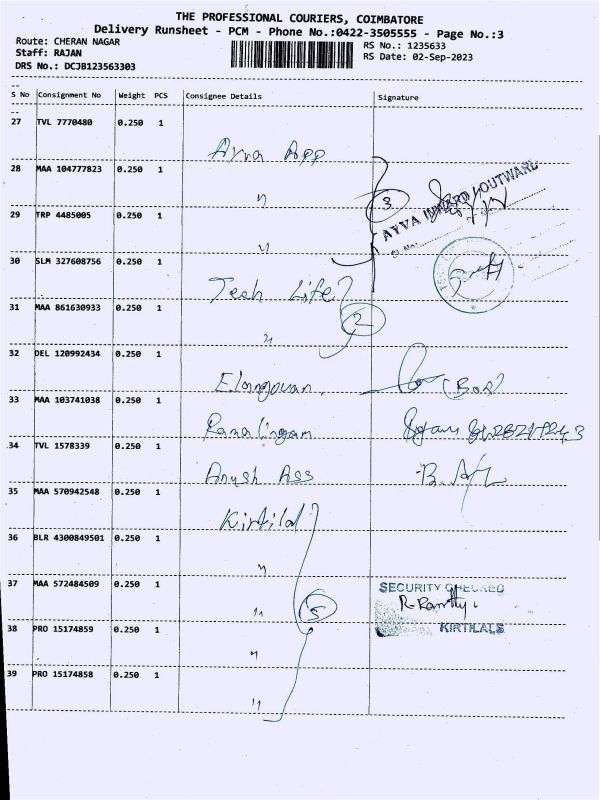 THE PROFESSIONAL COURIERS, COIMBATORE
Delivery Runsheet - PCM - Phone No.:0422-3505555 - Page No.:3
Route: CHERAN NAGAR
RS No.: 1235633
Staff: RAJAN
RS Date: 02-Sep-2023
DRS No.: DCJB123563303
S No Consignment No Weight PCS Consignee Details Signature
27 TVL 7770480 0.250 1 Ayva App
28 MAA 104777823 0.250 1 "
3
AYVA INWARD / OUTWARD
29 TRP 4485005 0.250 1 "
30 SLM 327608756 0.250 1 Tech Life
31 MAA 861630933 0.250 1 "
2
32 DEL 120992434 0.250 1 Elangovan. (Bas)
33 MAA 103741038 0.250 1 Ramalingam
34 TVL 1578339 0.250 1 Anush Ass
35 MAA 570942548 0.250 1 Kirtilal
36 BLR 4300849501 0.250 1 "
37 MAA 572484509 0.250 1 "
5
SECURITY CHECKED
KIRTILALS
38 PRO 15174859 0.250 1 "
39 PRO 15174858 0.250 1 "